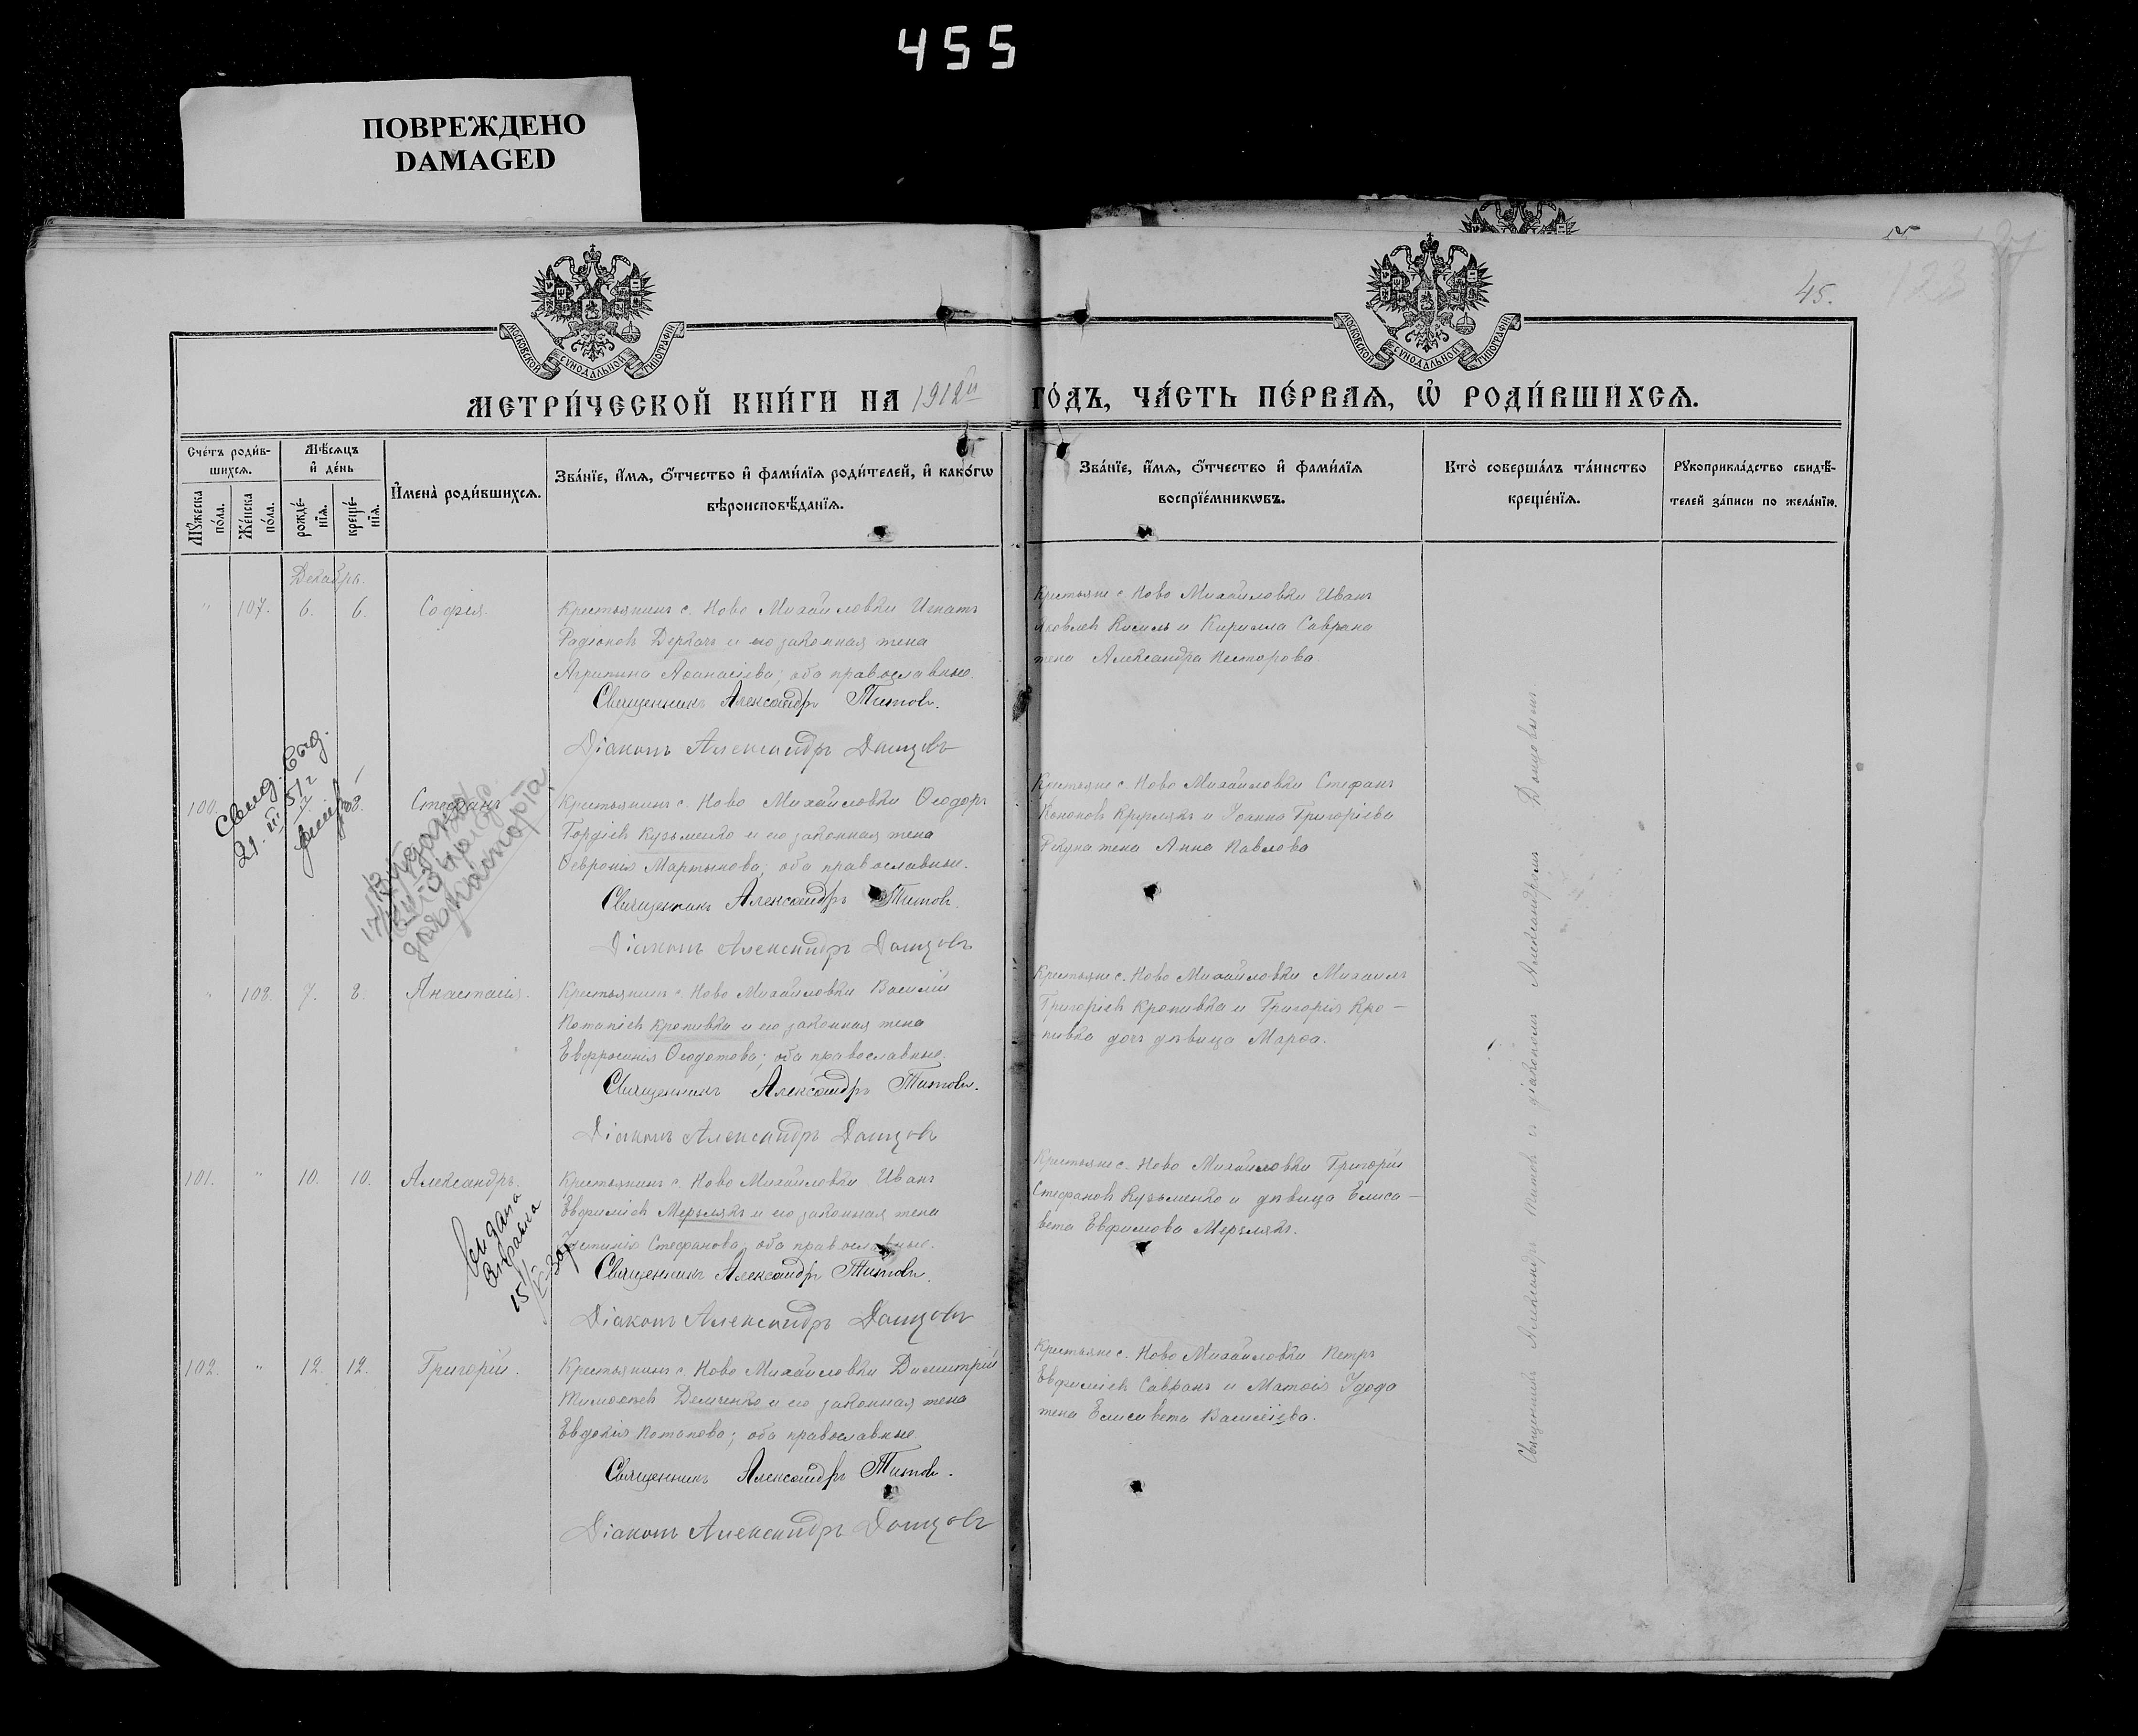 455
ПОВРЕЖДЕНО
DAMAGED
45.
123
МОСКОВСКОЙ СѴНОДАЛЬНОЙ ТИПОГРАФІИ
МОСКОВСКОЙ СѴНОДАЛЬНОЙ ТИПОГРАФІИ
МЕТРИ́ЧЕСКОЙ КНИ́ГИ НА 1912й ГО́ДЪ, ЧА́СТЬ ПЕ́РВАѦ, Ѡ҆ РОДИ́ВШИХСѦ.
Сче́тъ роди́в-
шихсѧ.
Мѣ́сѧцъ
и҆ де́нь
Мꙋ́жеска
по́ла.
Же́нска
по́ла.
рожде́-
нїѧ.
креще́-
нїѧ.
И҆мена̀ роди́вшихсѧ.
Зва́нїе, и҆́мѧ, ѻ҆́тчество и҆ фами́лїѧ роди́телей, и҆ како́гѡ
вѣроисповѣ́данїѧ.
Зва́нїе, и҆́мѧ, ѻ҆́тчество и҆ фами́лїѧ
воспрїе́мникѡвъ.
Кто̀ соверша́лъ та́инство
креще́нїѧ.
Рꙋкоприкла́дство свидѣ́-
телей за́писи по жела́нїю.
Декабрь.
" 107. 6. 6. Софія.
Крестьянинъ с. Ново Михайловки Игнатъ
Радіоновъ Деркачъ и его законная жена
Агрипина Аѳанасіева; оба православные.
Священникъ Александръ Титовъ.
Діаконъ Александръ Донцовъ
Крестьяне с. Ново Михайловки Иванъ
Яковлевъ Кисиль и Кирилла Саврана
жена Александра Несторова.
100. 8. Стефанъ
Свид. выд.
21. III 51 г
Выдана
для
Крестьянинъ с. Ново Михайловки Ѳеодоръ
Гордіевъ Кузьменко и его законная жена
Ѳевронія Мартынова; оба православные.
Священникъ Александръ Титовъ.
Діаконъ Александръ Донцовъ
Крестьяне с. Ново Михайловки Стефанъ
Кононовъ Круглякъ и Іоанна Григоріева
жена Анна Павлова
" 108. 7. 8. Анастасія.
Крестьянинъ с. Ново Михайловки Василій
Потапіевъ Кропивка и его законная жена
Евфросинія Ѳеодотова; оба православные.
Священникъ Александръ Титовъ.
Діаконъ Александръ Донцовъ
Крестьяне с. Ново Михайловки Михаилъ
Григоріевъ Кропивка и Григорія Кро-
пивка дочь дѣвица Марѳа.
101. " 10. 10. Александръ.
Выдана
справка
15/V-30г
Крестьянинъ с. Ново Михайловки Иванъ
Евфиміевъ Мерзлякъ и его законная жена
Іустинія Стефанова; оба православные.
Священникъ Александръ Титовъ.
Діаконъ Александръ Донцовъ
Крестьяне с. Ново Михайловки Григорій
Стефановъ Кузьменко и дѣвица Елиса-
вета Евфимова Мерзлякъ.
102. " 12. 12. Григорій.
Крестьянинъ с. Ново Михайловки Димитрій
Тимоѳеевъ Демченко и его законная жена
Евдокія Потапова; оба православные.
Священникъ Александръ Титовъ.
Діаконъ Александръ Донцовъ
Крестьяне с. Ново Михайловки Петръ
Евфиміевъ Савранъ и Матѳія Удода
жена Елисавета Василіева.
Священникъ Александръ Титовъ съ діакономъ Александромъ Донцовымъ.